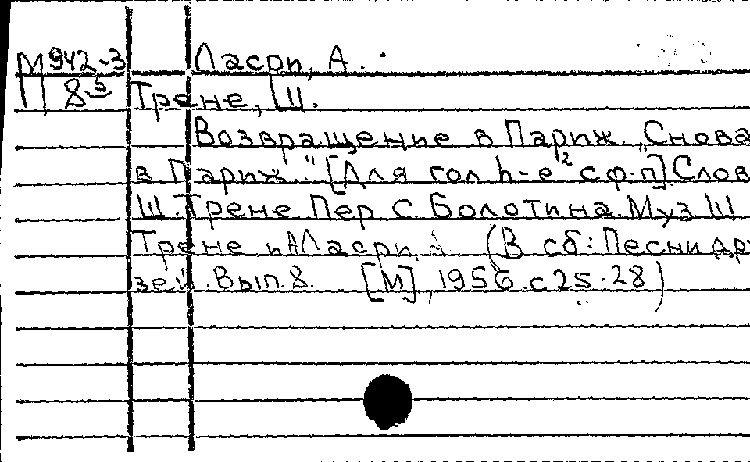 М 942-3 Ласри, А.
П 8-5 Трене, Ш.
Возвращение в Париж „Снова
в Париж." [Для гол h-e² с ф-п] Слов
Ш. Трене Пер С. Болотина. Муз Ш
Трене и А Ласри. (В сб: Песни дру
зей. Вып. 8. [М], 1956 с 25-28)